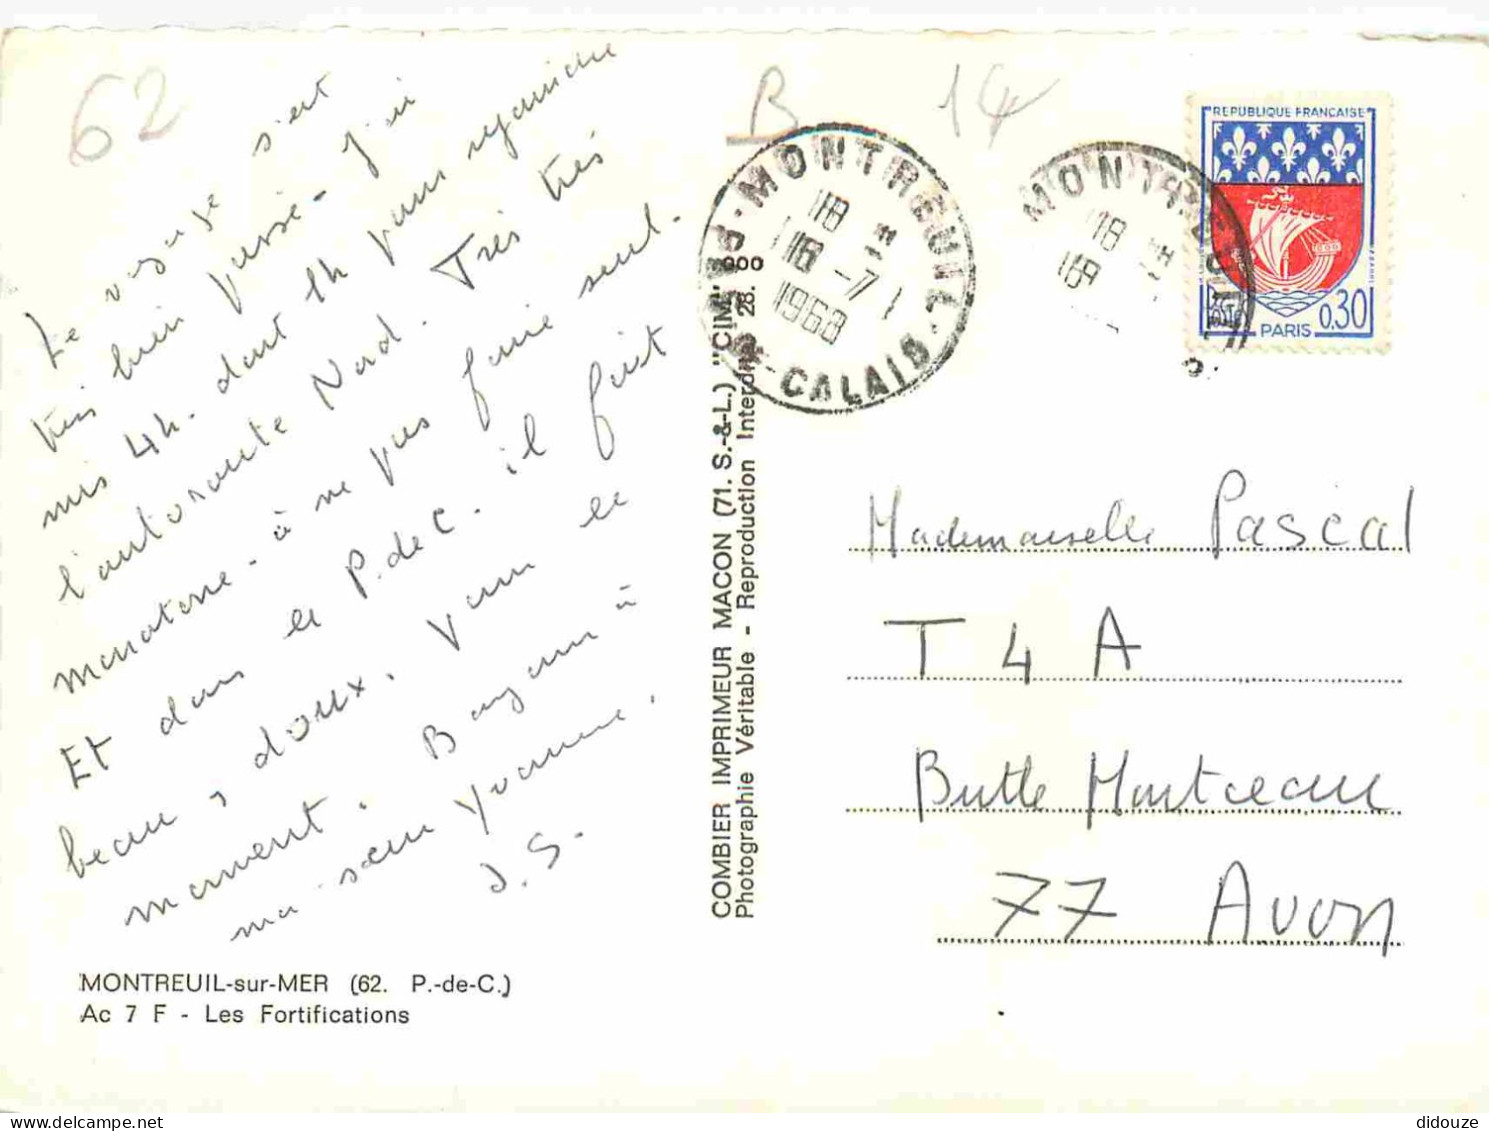 62
B
Le voyage s'est
très bien passé - J'ai
mis 4h. dont 1h pour rejoindre
l'autoroute Nord. Très très
monotone - à ne pas faire seul.
Et dans le P.de C. il fait
beau, doux. Vam le
moment. Bonjour à
ma sœur Yvonne.
J. S.
MONTREUIL-sur-MER (62. P.-de-C.)
Ac 7 F - Les Fortifications
COMBIER IMPRIMEUR MACON (71. S.-&-L.) "CIM"
Photographie Véritable - Reproduction Interdite 28.
MONTREUIL
18 H
16 -7
1968
P. DE CALAIS
MONTREUIL
18 H
REPUBLIQUE FRANÇAISE
POSTES
PARIS 0,30
Mademoiselle Pascal
T 4 A
Butte Montceau
77 Avon
didouze